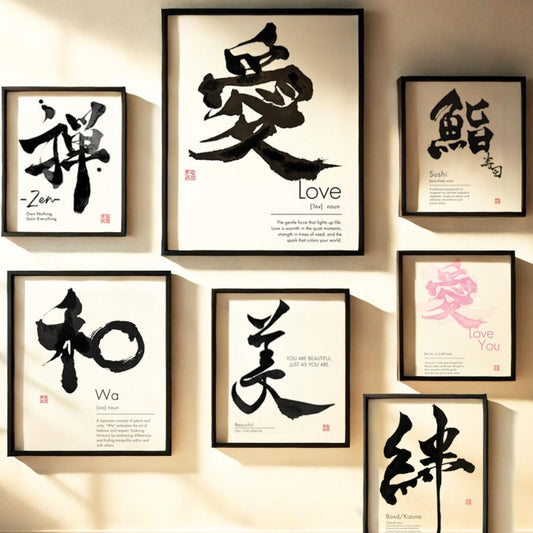 禅
-Zen-
Own Nothing,
Gain Everything.
愛
Love
['lʌv] noun
The gentle force that lights up life.
Love is warmth in the quiet moments,
strength in times of need, and the
spark that colors your world.
鮨
寿司
Sushi
和
Wa
[wa] noun
A Japanese concept of peace and
unity. "Wa" embodies the art of
balance and respect, fostering
harmony by embracing differences
and finding tranquility within and
with others.
美
YOU ARE BEAUTIFUL,
JUST AS YOU ARE.
Beautiful
愛
Love
You
絆
Bond/Kizuna